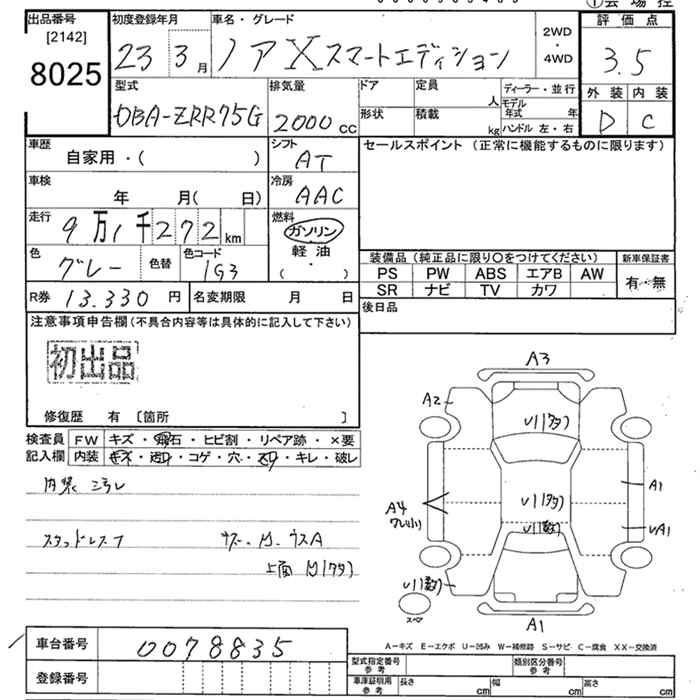 出品番号
[2142]
8025
初度登録年月
23 3月
車名・グレード
ノア X スマートエディション
2WD
・
4WD
評価点
3.5
外装 内装
D C
型式
DBA-ZRR75G
排気量
2000 cc
ドア
形状
定員
人
積載
kg
ディーラー・並行
モデル年式 年
ハンドル 左・右
車歴
自家用・( )
シフト
AT
セールスポイント (正常に機能するものに限ります)
車検
年 月( 日)
冷房
AAC
走行
9万1千272km
燃料
ガソリン
軽油
( ・ )
色
グレー
色替
色コード
1G3
装備品 (純正品に限り○をつけてください)
新車保証書
PS PW ABS エアB AW
SR ナビ TV カワ
有・無
R券 13.330 円
名変期限 月 日
後日品
注意事項申告欄(不具合内容等は具体的に記入して下さい)
初出品
修復歴 有 〔箇所 〕
検査員記入欄
FW キズ・飛石・ヒビ割・リペア跡・×要
内装 キズ・・コゲ・穴・・キレ・破レ
内装
スタッドレス
キズ・・ウスA
上面
A3
A2
A4
A1
A1
スペア
車台番号 0078835
登録番号
A-キズ E-エクボ U-凹み W-補修跡 S-サビ C-腐食 XX-交換済
型式指定番号 参考
類別区分番号 参考
車庫証明用 参考
長さ cm 幅 cm 高さ cm